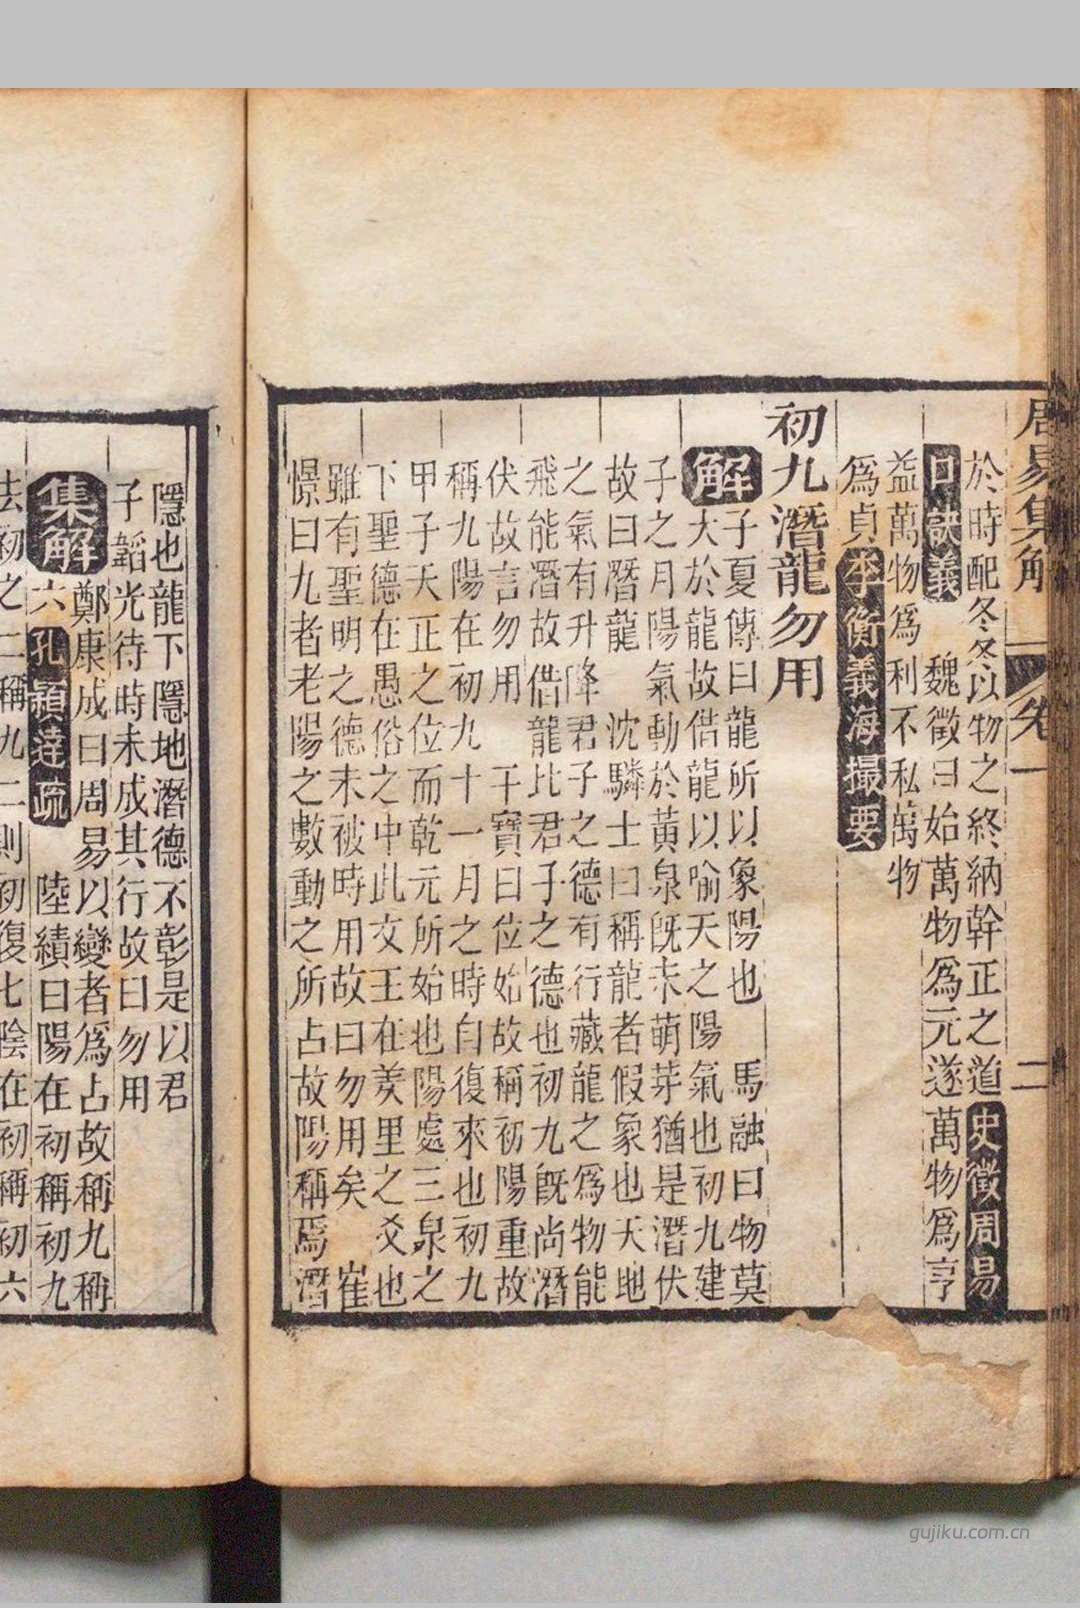 周易集解 卷一 二
於時配冬冬以物之終納幹正之道史徵周易
口訣義 魏徵曰始萬物爲元遂萬物爲亨
益萬物爲利不私萬物
爲貞李衡義海撮要
初九潛龍勿用
解 子夏傳曰龍所以象陽也 馬融曰物莫
大於龍故借龍以喻天之陽氣也初九建
子之月陽氣動於黃泉旣未萌芽猶是潛伏
故曰潛龍 沈驎士曰稱龍者假象也天地
之氣有升降君子之德有行藏龍之爲物能
飛能潛故借龍比君子之德也初九旣尚潛
伏故言勿用 干寶曰位始故稱初陽重故
稱九陽在初九十一月之時自復來也初九
甲子天正之位而乾元所始也陽處三泉之
下聖德在愚俗之中此文王在羑里之爻也
雖有聖明之德未被時用故曰勿用矣 崔
憬曰九者老陽之數動之所占故陽稱焉潛
隱也龍下隱地潛德不彰是以君
子韜光待時未成其行故曰勿用
集解 鄭康成曰周易以變者爲占故稱九稱
六孔穎達疏 陸績曰陽在初稱初九
去初之二稱九二則初復七陰在初稱初六
gujiku.com.cn